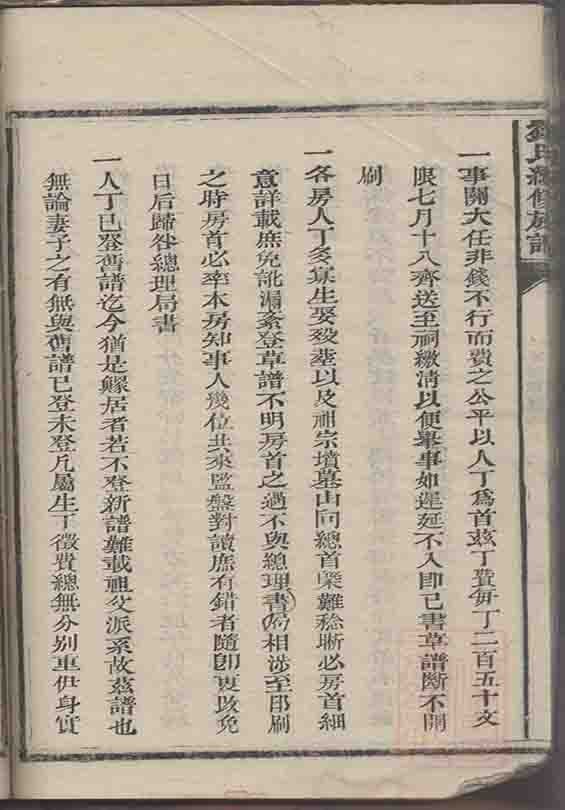 氏總修族譜
一事關大任非錢不行而費之公平以人丁爲首兹丁費每丁二百五十文
限七月十八齊送至祠繳清以便舉事如遲延不入即已書草譜斷不開
刷
一各房人丁多寡生娶殁塟以及祖宗墳墓山向總首槩難稔晰必房首細
意詳載庶免訛漏紊登草譜不明房首之過不與總理書局相涉至印刷
之時房首必率本房知事人幾位共來監盤對讀庶有錯者隨卽更改免
日后歸咎總理局書
一人丁已登舊譜迄今猶是鰥居者若不登新譜難載祖父派系故兹譜也
無論妻子之有無與舊譜已登未登凡屬生丁徵費總無分別車伊身實